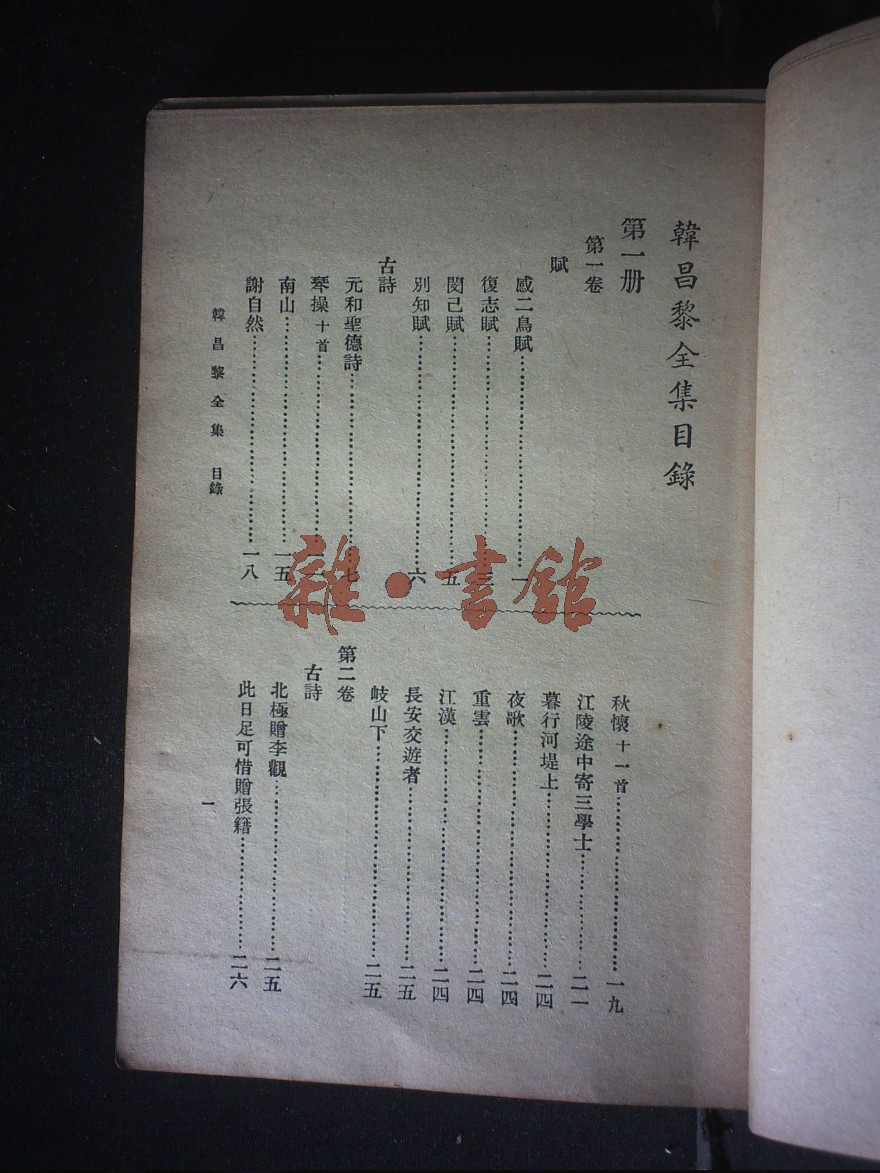 韓昌黎全集目錄
第一册
第一卷
賦
感二鳥賦⋯⋯一
復志賦⋯⋯三
閔己賦⋯⋯五
別知賦⋯⋯六
古詩
元和聖德詩⋯⋯七
琴操十首⋯⋯
南山⋯⋯一五
謝自然⋯⋯一八
秋懷十一首⋯⋯一九
江陵途中寄三學士⋯⋯二一
暮行河堤上⋯⋯二四
夜歌⋯⋯二四
重雲⋯⋯二四
江漢⋯⋯二四
長安交遊者⋯⋯二五
岐山下⋯⋯二五
第二卷
古詩
北極贈李觀⋯⋯二五
此日足可惜贈張籍⋯⋯二六
韓昌黎全集 目錄
一
雜·書館